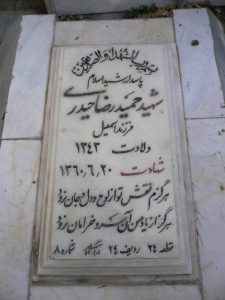 پاسدار رشید اسلام
شهید حمید رضا حیدری
فرزند اسمعیل
ولادت ۱۳۴۳
شهادت ۱۳۶۰,۶,۲۰
هرگزم نقش تو از لوح دل و جان نرود
هرگز از یاد من آن سرو خرامان نرود
قطعه ۲۴ ردیف ۲۴ شماره ۸